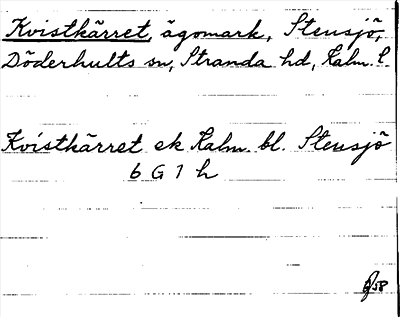 Kvistkärret, ägomark, Stensjö,
Döderhults sn, Stranda hd, Kalm. l.
Kvistkärret ek Kalm. bl. Stensjö
6 G 1 h
58